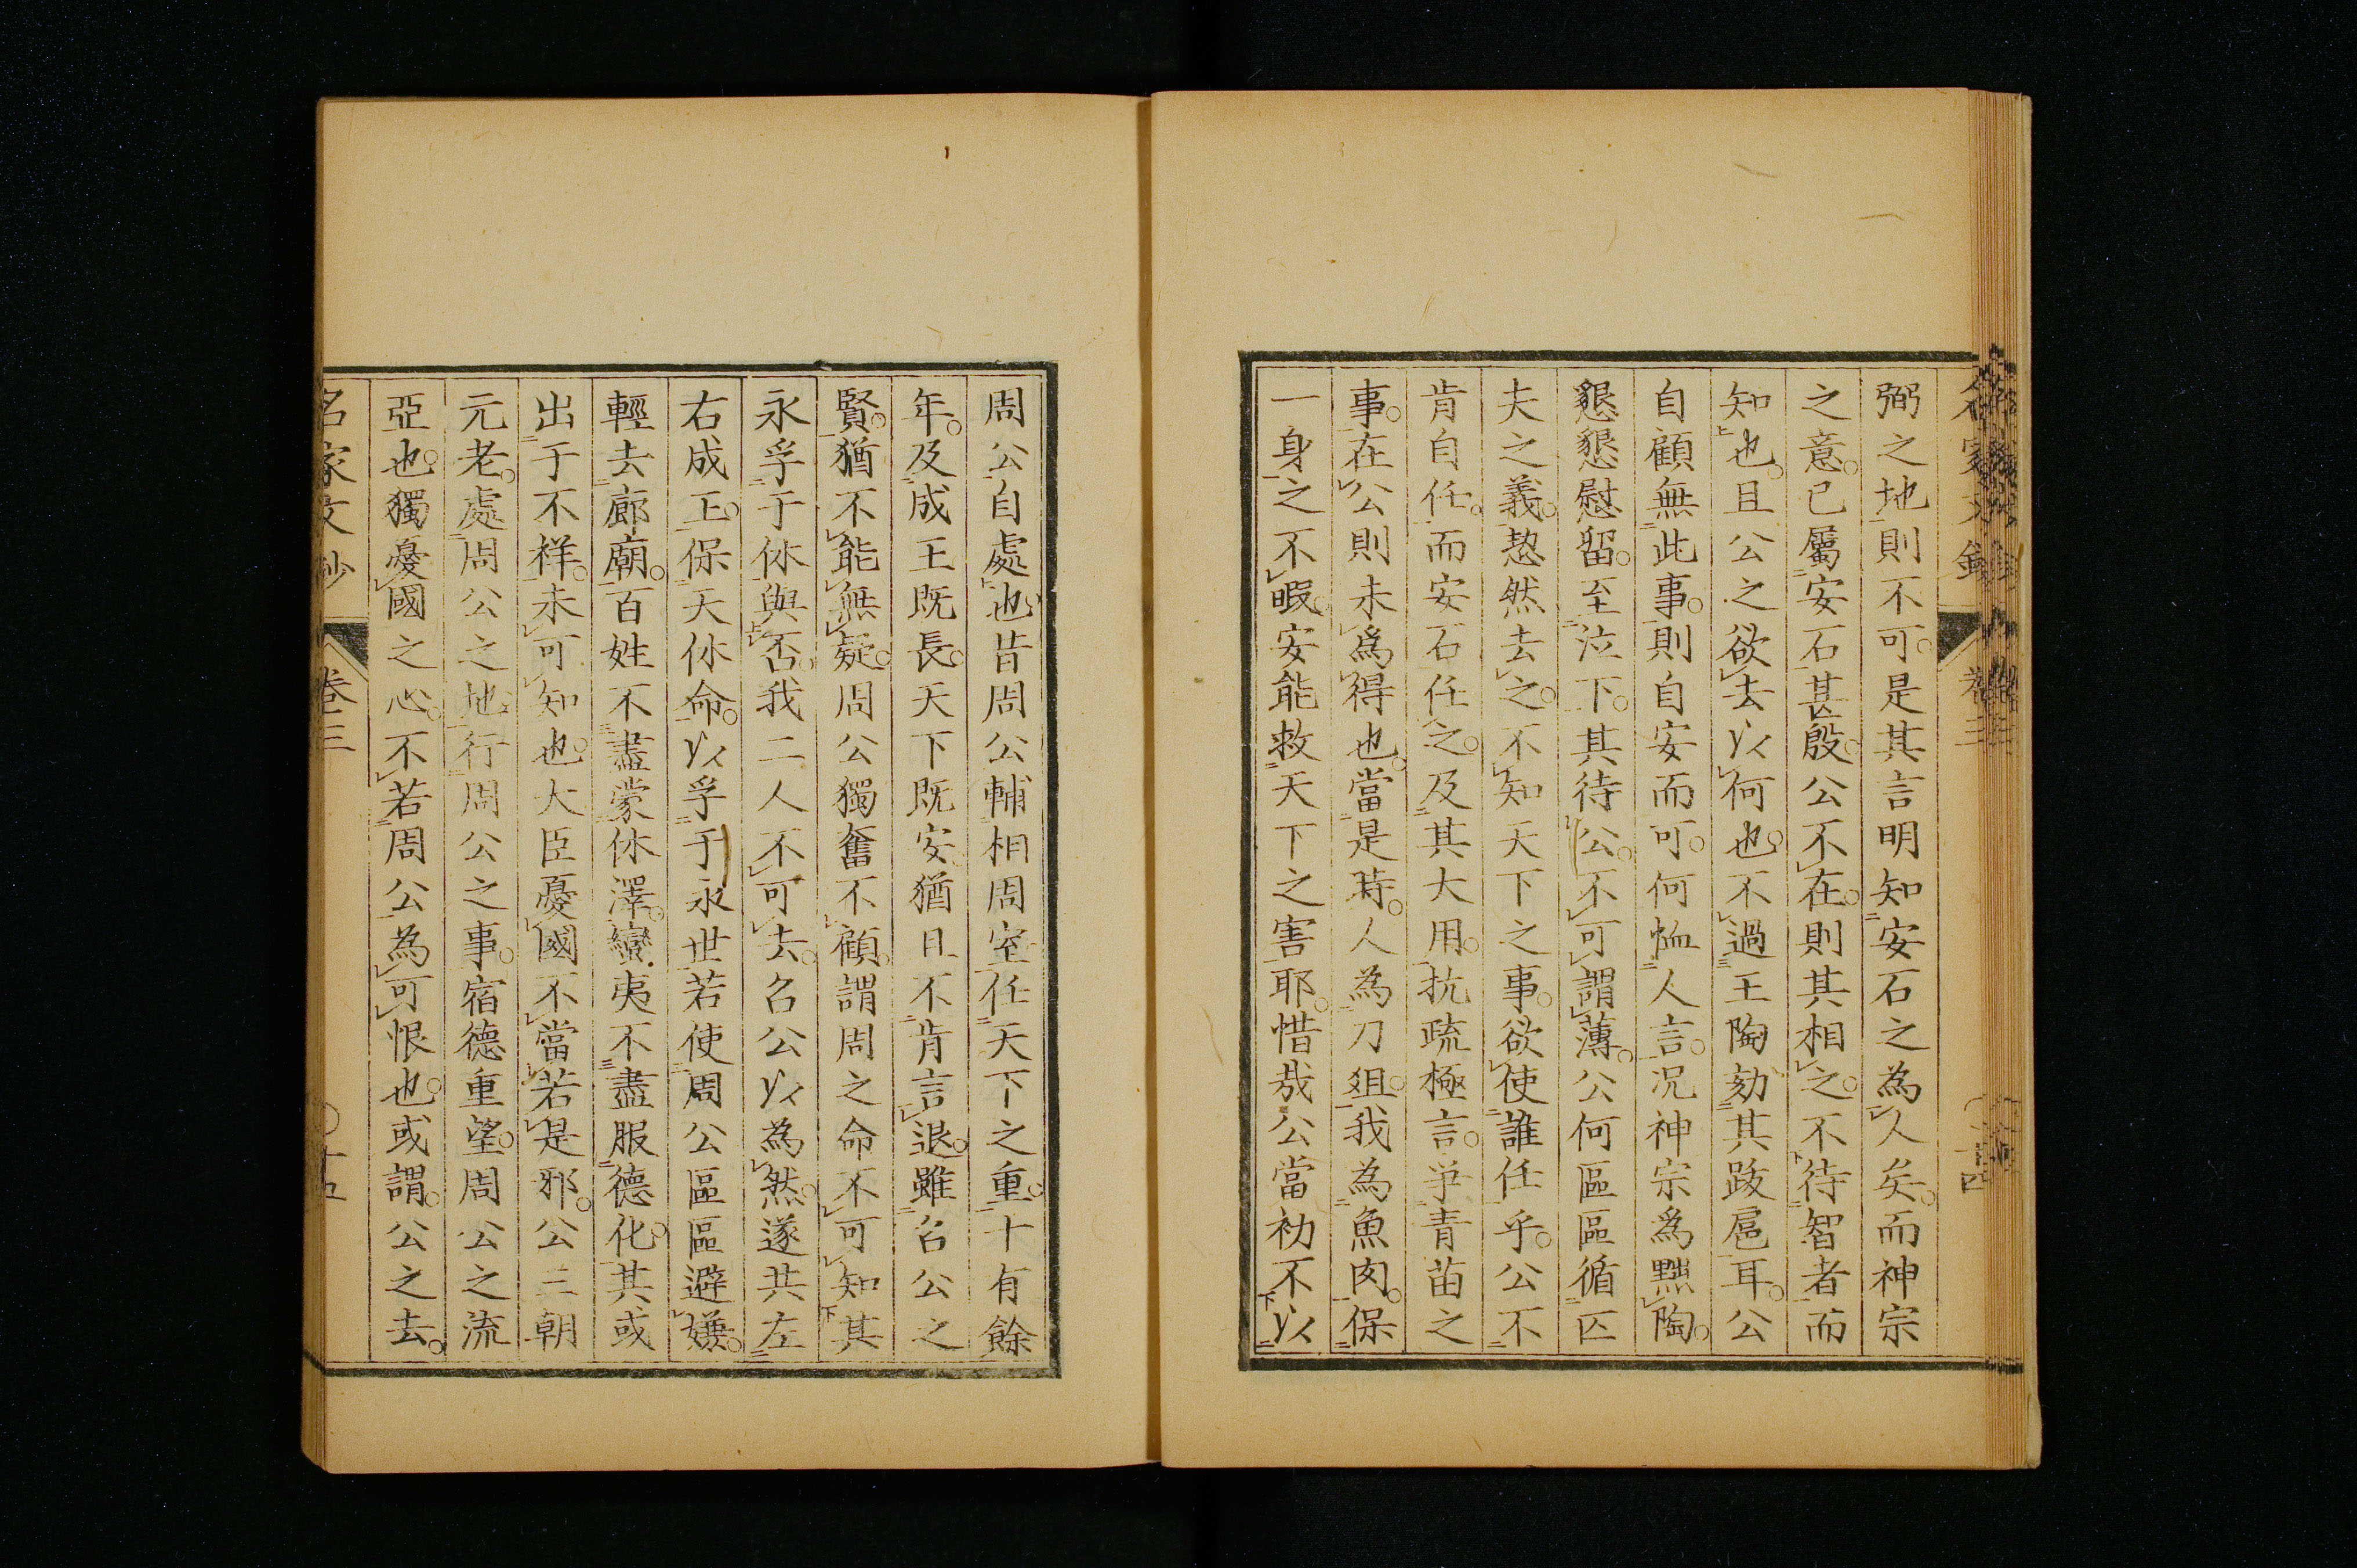 弼之地則不可是其言明知安石之為人矣而神宗
之意已屬安石甚殷公不在則其相之不待智者而
知也且公之欲去以何也不過王陶劾其跋扈耳公
自顧無此事則自安而可何恤人言況神宗爲黜陶
懇懇慰留至泣下其待公不可謂薄公何區區循匹
夫之義愸然去之不知天下之事欲使誰任乎公不
肯自任而安石任之及其大用抗疏極言爭青苗之
事在公則未爲得也當是時人為刀俎我為魚肉保
一身之不暇安能救天下之害耶惜哉公當初不以
周公自處也昔周公輔相周室任天下之重十有餘
年及成王既長天下既安猶且不肯言退雖召公之
賢猶不能無疑周公獨奮不顧謂周之命不可知其
永孚于休與否我二人不可去召公以為然遂共左
右成王保天休命以孚于永世若使周公區區避嫌
輕去廊廟百姓不盡蒙休澤蠻夷不盡服德化其或
出于不祥未可知也大臣憂國不當若是邪公三朝
元老處周公之地行周公之事宿德重望周公之流
亞也獨憂國之心不若周公為可恨也或謂公之去
名家文抄 卷三 十五